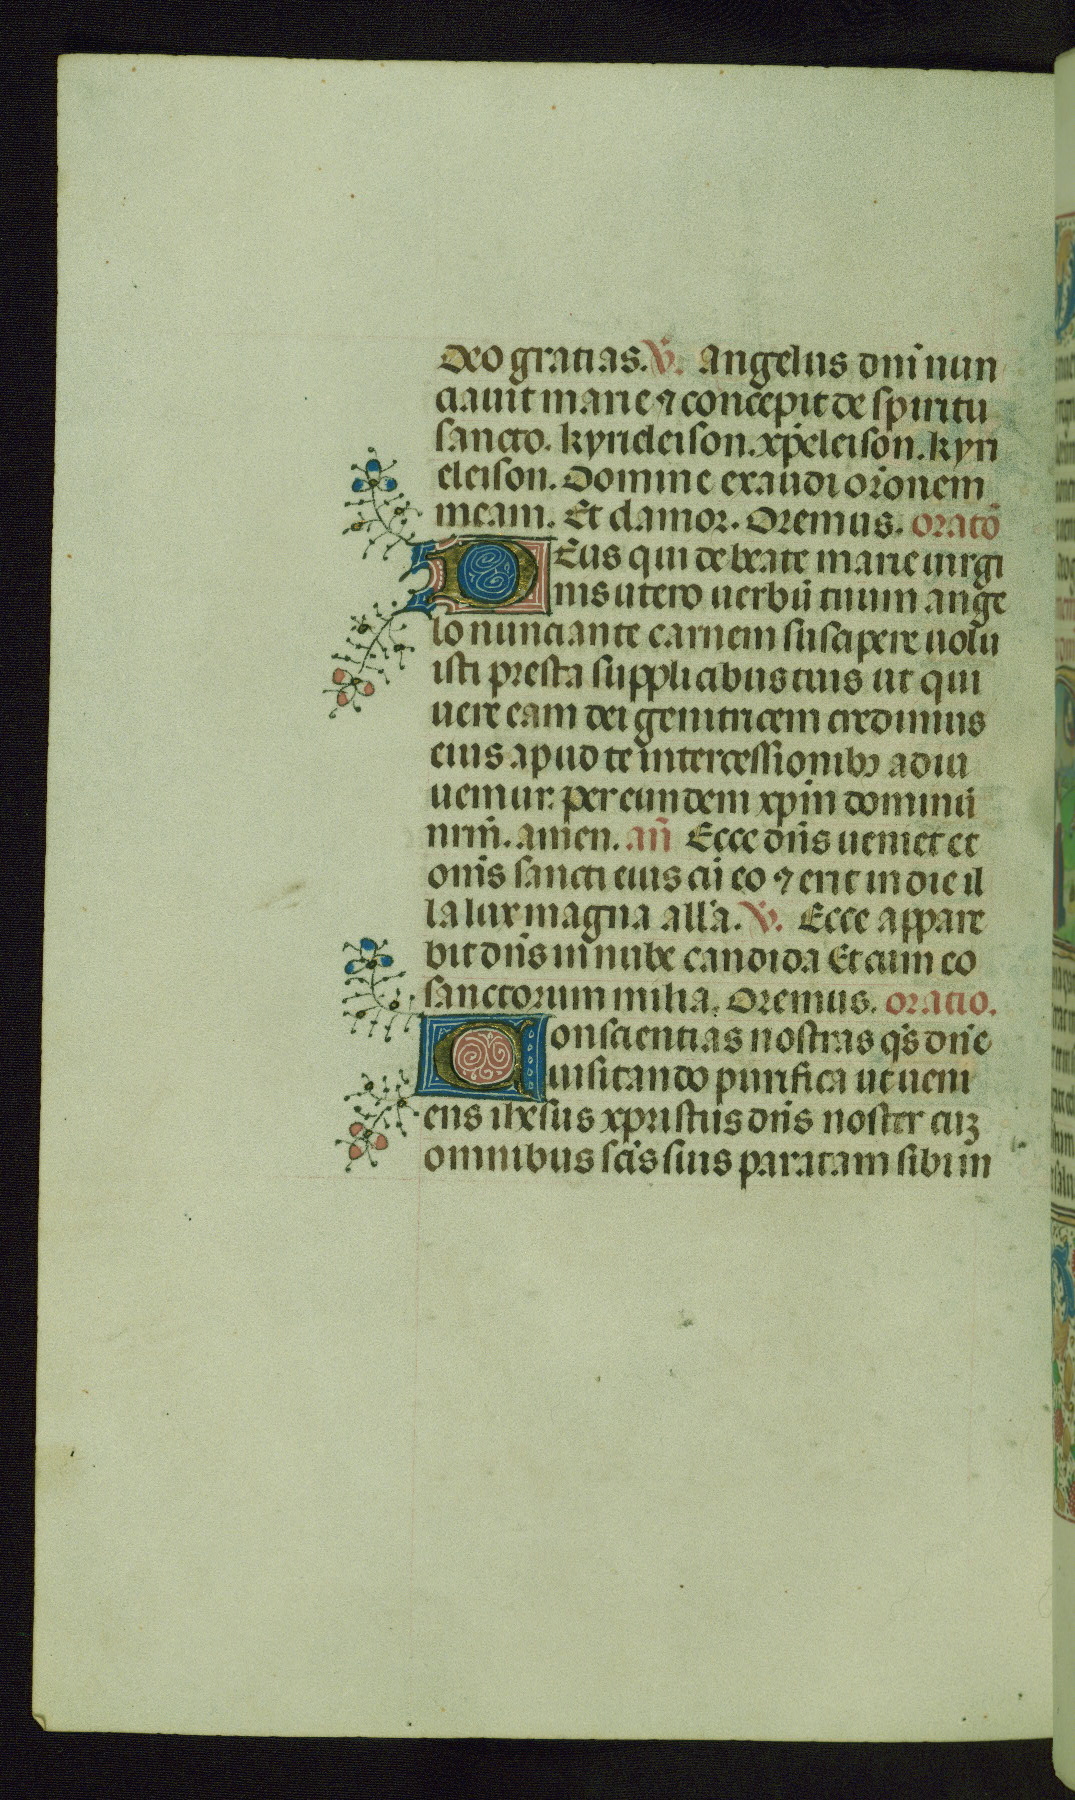 Deo gratias. V̄. Angelus dn̄i nun
ciauit marie ⁊ concepit de spiritu
sancto. kyrieleison. xp̄eleison. kyri
eleison. Domine exaudi or̄onem
meam. Et clamor. Oremus. oratō
Deus qui de beate marie uirgi
nis utero uerbū tuum ange
lo nunciante carnem suscipere uolu
isti presta supplicibus tuis ut qui
uere eam dei genitricem credimus
eius apud te intercessionibꝫ adiu
uemur. per eundem xp̄m dominū
nr̄m. amen. an̄ Ecce dn̄s ueniet et
om̄s sancti eius cū eo ⁊ erit in die il
la lux magna all̄a. V̄. Ecce appare
bit dn̄s in nube candida Et cum eo
sanctorum milia. Oremus. oratio.
Conscientias nostras qs̄ dn̄e
uisitando purifica ut ueni
ens ihesus xpristus dn̄s noster cuꝫ
omnibus sc̄is suis paratam sibi in